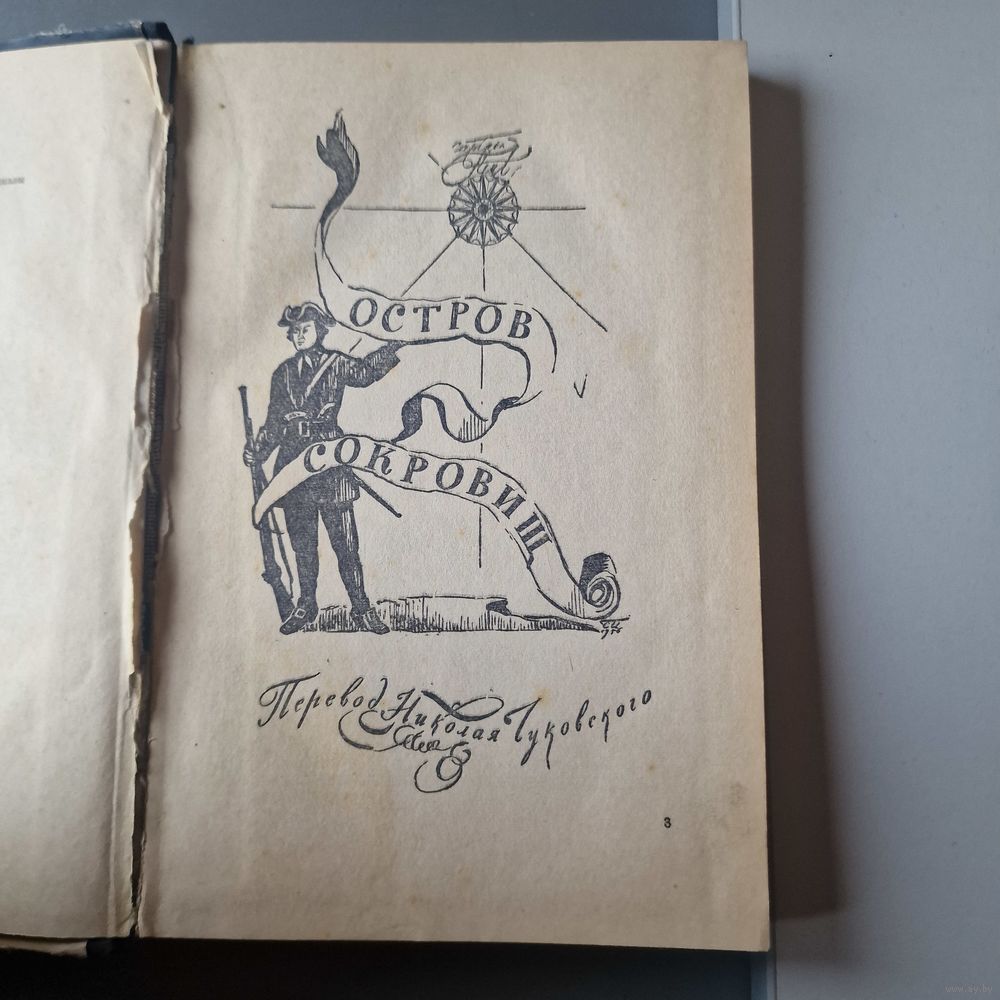 ОСТРОВ
СОКРОВИЩ
Перевод Николая Чуковского
3
www.ay.by